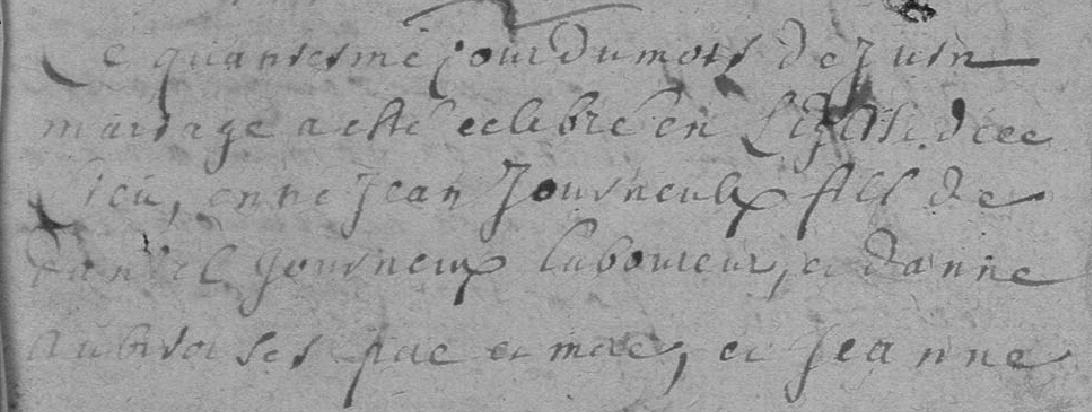 Le quantiesme jour du mois de Juin
mariage a esté celebre en L'eglise de ce
Lieu, entre Jean Journeulx fils de
daniel journeux laboureur, et d'anne
ses pere et mere, et Jeanne